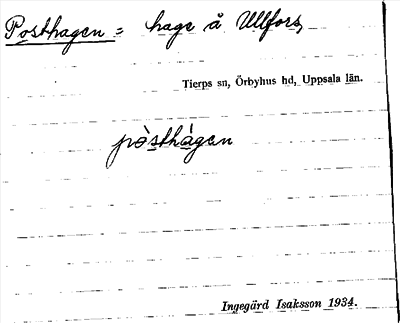 Posthagen = hage å Ullfors,
Tierps sn, Örbyhus hd, Uppsala län.
pòsthàgen
Ingegärd Isaksson 1934.